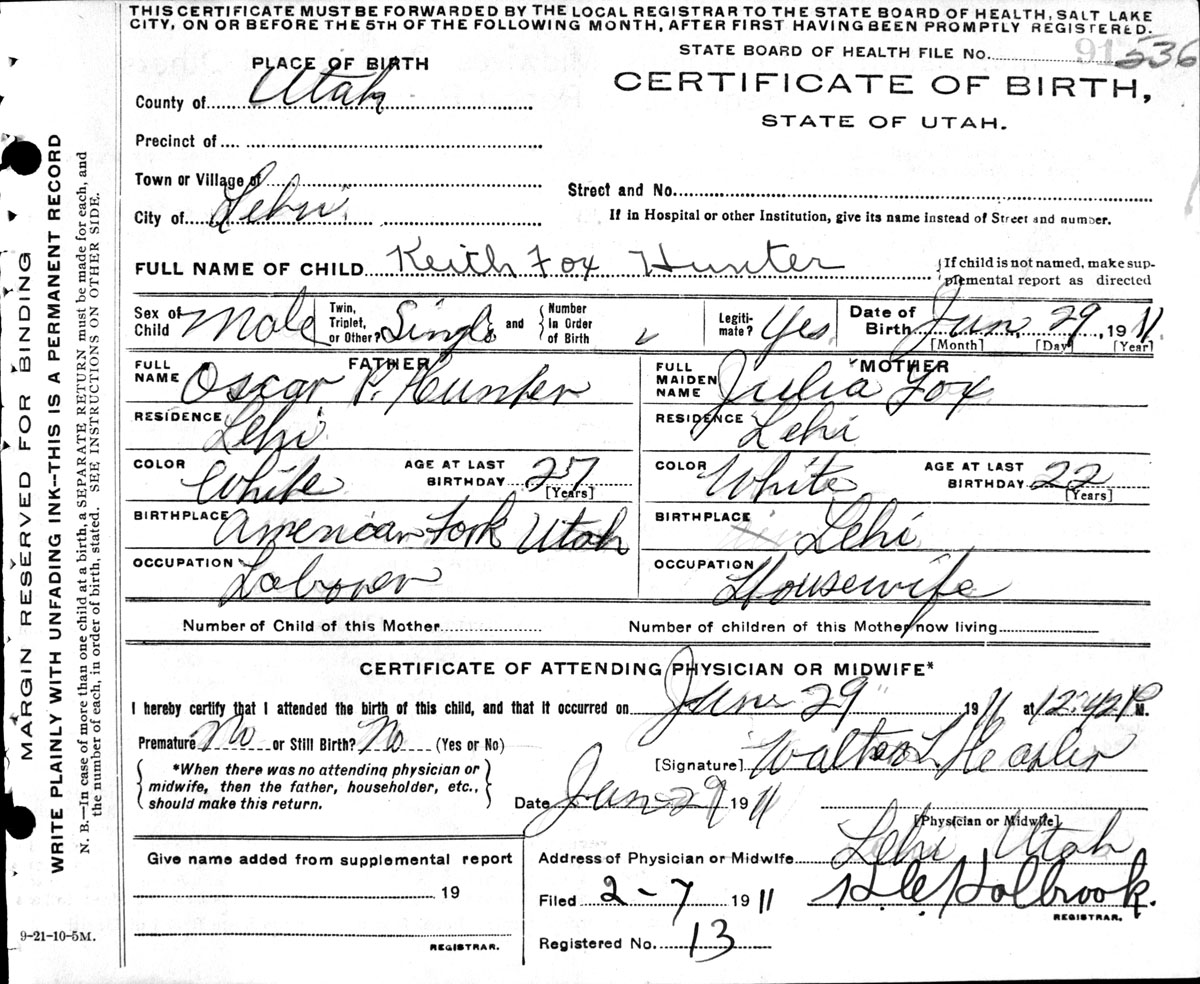 THIS CERTIFICATE MUST BE FORWARDED BY THE LOCAL REGISTRAR TO THE STATE BOARD OF HEALTH, SALT LAKE
CITY, ON OR BEFORE THE 5TH OF THE FOLLOWING MONTH, AFTER FIRST HAVING BEEN PROMPTLY REGISTERED.
STATE BOARD OF HEALTH FILE No. 536
PLACE OF BIRTH
CERTIFICATE OF BIRTH,
STATE OF UTAH.
County of Utah
Precinct of
Town or Village of
Street and No.
City of Lehi
If in Hospital or other Institution, give its name instead of Street and number.
FULL NAME OF CHILD Keith Fox Hunter
{If child is not named, make sup-
plemental report as directed
Sex of Child Male Twin, Triplet, or Other? Single and {Number In Order of Birth Legiti-mate? Yes Date of Birth Jan, 29, 1911
[Month] [Day] [Year]
FATHER
FULL NAME Oscar P. Hunter
MOTHER
FULL MAIDEN NAME Julia Fox
RESIDENCE Lehi
RESIDENCE Lehi
COLOR White AGE AT LAST BIRTHDAY 27 [Years]
COLOR White AGE AT LAST BIRTHDAY 22 [Years]
BIRTHPLACE American Fork Utah
BIRTHPLACE Lehi
OCCUPATION Laborer
OCCUPATION Housewife
Number of Child of this Mother
Number of children of this Mother now living
CERTIFICATE OF ATTENDING PHYSICIAN OR MIDWIFE*
I hereby certify that I attended the birth of this child, and that it occurred on Jan 29 1911 at 12:42 P M.
Premature No or Still Birth? No (Yes or No)
{*When there was no attending physician or
midwife, then the father, householder, etc.,
should make this return.}
[Signature] Walter L.
Date Jan 29 1911
[Physician or Midwife]
Address of Physician or Midwife Lehi Utah
Give name added from supplemental report
19
REGISTRAR.
Filed 2-7 1911 Holbrook.
REGISTRAR.
Registered No. 13
9-21-10-5M.
MARGIN RESERVED FOR BINDING
WRITE PLAINLY WITH UNFADING INK--THIS IS A PERMANENT RECORD
N. B.—In case of more than one child at a birth, a SEPARATE RETURN must be made for each, and
the number of each, in order of birth, stated. SEE INSTRUCTIONS ON OTHER SIDE.